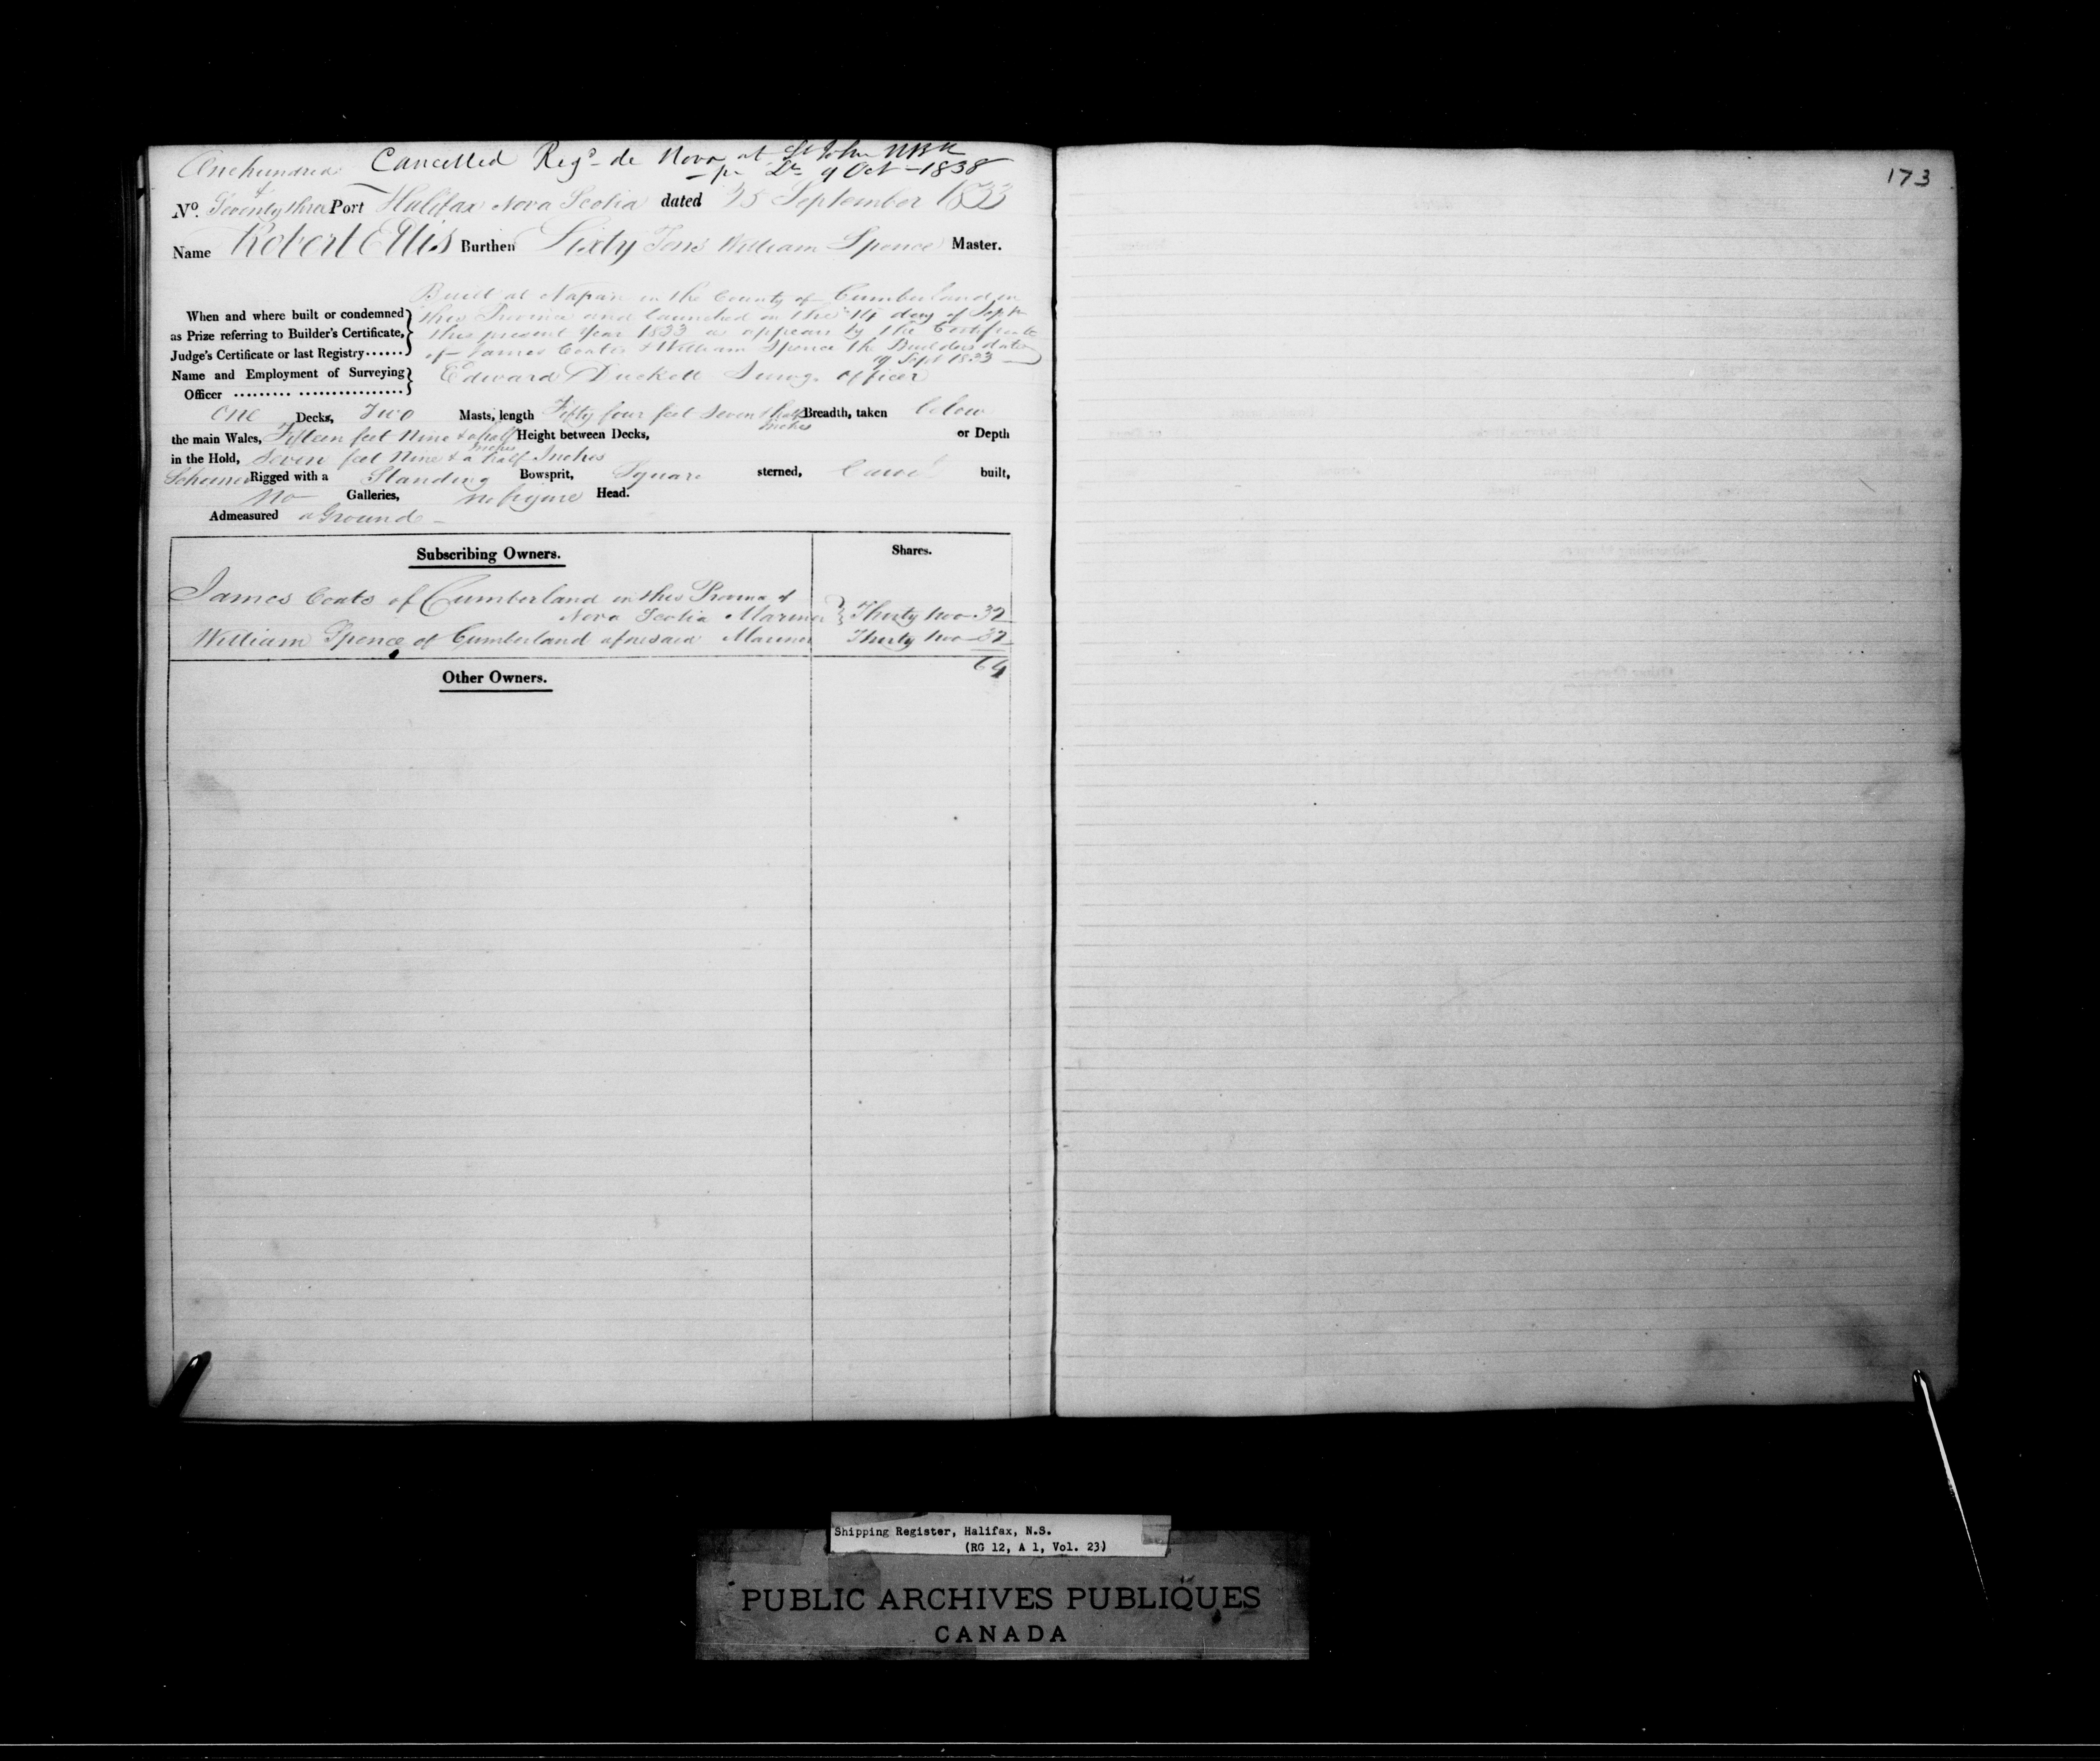 Onehundred Cancelled Regd de Novo at St John NBk
& — pr Lr 9 Oct — 1838
No. Seventy three Port Halifax Nova Scotia dated 25 September 1833
Name Robert Ellis Burthen Sixty Tons William Spence Master.
Built at Napan in the County of Cumberland in
When and where built or condemned this Province and launched on the 14 day of Septr
as Prize referring to Builder's Certificate, this present Year 1833 as appears by the Certificate
Judge's Certificate or last Registry...... of James Coats & William Spence the Builders dated
19 Sept 1833
Name and Employment of Surveying Edward Duckett Survg. Officer
Officer ......... ................
One Decks, Two Masts, length Fifty four feet Seven & half Inches Breadth, taken below
the main Wales, Fifteen feet Nine & a half Inches Height between Decks, or Depth
in the Hold, Seven feet Nine & a half Inches
Schooner Rigged with a Standing Bowsprit, Square sterned, Carvel built,
No Galleries, no figure Head.
Admeasured a Ground —
Subscribing Owners. Shares.
James Coats of Cumberland in this Province of
Nova Scotia Mariner } Thirty two 32
William Spence of Cumberland aforesaid Mariner Thirty two 32
64
Other Owners.
173
Shipping Register, Halifax, N.S.
(RG 12, A 1, Vol. 23)
PUBLIC ARCHIVES PUBLIQUES
CANADA